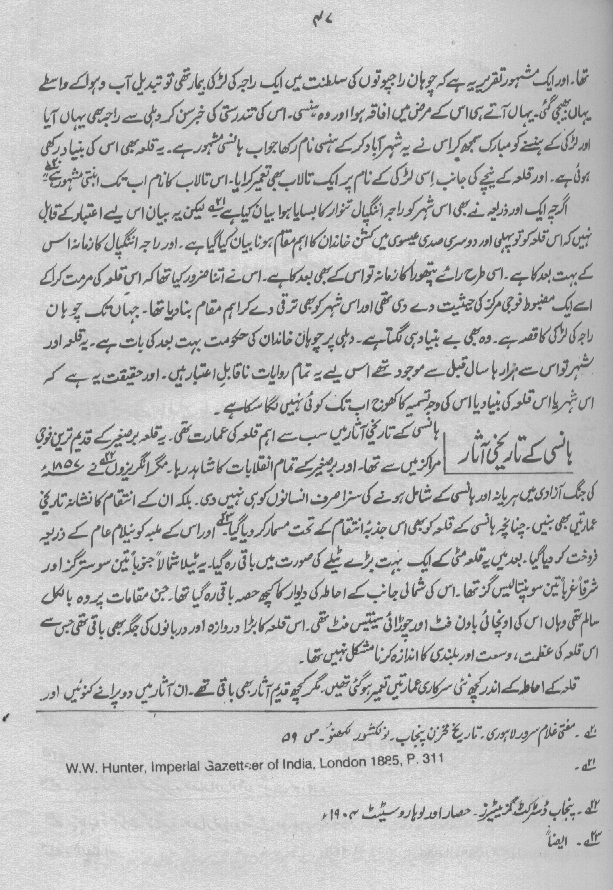 ۴۷
تھا۔ اور ایک مشہور تقریر یہ ہے کہ چوہان راجپوتوں کی سلطنت میں ایک راجہ کی لڑکی بیمار تھی تو تبدیل آب و ہوا کے واسطے
یہاں بھیجی گئی۔ یہاں آتے ہی اس کے مرض میں افاقہ ہوا اور وہ ہنسی۔ اس کی تندرستی کی خبر سن کر دہلی سے راجہ بھی یہاں آیا
اور لڑکی کے ہنسنے کو مبارک سمجھ کر اس نے یہ شہر آباد کر کے ہنسی نام رکھا جو اب ہانسی مشہور ہے۔ یہ قلعہ بھی اس کی بنیاد رکھی
ہوئی ہے۔ اور قلعہ کے نیچے کی جانب اسی لڑکی کے نام پر ایک تالاب بھی تعمیر کرایا۔ اس تالاب کا نام اب تک انبتی مشہور ہے۲۰؎
اگرچہ ایک اور ذریعہ نے بھی اس شہر کو راجہ اننگپال تنوار کا بسایا ہوا بیان کیا ہے۲۱؎ لیکن یہ بیان اس لیے اعتماد کے قابل
نہیں کہ اس قلعہ کو تو پہلی اور دوسری صدی عیسوی میں کشن خاندان کا اہم مقام ہونا بیان کیا گیا ہے۔ اور راجہ اننگپال کا زمانہ اس
کے بہت بعد کا ہے۔ اسی طرح رائے پتھورا کا زمانہ تو اس کے بھی بعد کا ہے۔ اس نے اتنا ضرور کیا تھا کہ اس قلعہ کی مرمت کرا کے
اسے ایک مضبوط فوجی مرکز کی حیثیت دے دی تھی اور اس شہر کو بھی ترقی دے کر اہم مقام بنا دیا تھا۔ جہاں تک چوہان
راجہ کی لڑکی کا قصہ ہے۔ وہ بھی بے بنیاد ہی لگتا ہے۔ دہلی پر چوہان خاندان کی حکومت بہت بعد کی بات ہے۔ یہ قلعہ اور
شہر تو اس سے ہزارہا سال قبل سے موجود تھے اس لیے یہ تمام روایات ناقابل اعتبار ہیں۔ اور حقیقت یہ ہے کہ
اس شہر یا اس قلعہ کی بنیاد یا اس کی وجہ تسمیہ کا کھوج اب تک کوئی نہیں لگا سکا ہے۔
ہانسی کے تاریخی آثار
ہانسی کے تاریخی آثار میں سب سے اہم قلعہ کی عمارت تھی۔ یہ قلعہ برصغیر کے قدیم ترین فوجی
مراکز میں سے تھا۔ اور برصغیر کے تمام انقلابات کا شاہد رہا۔ مگر انگریزوں۲۲؎ نے ۱۸۵۷ء
کی جنگ آزادی میں ہریانہ اور ہانسی کے شامل ہونے کی سزا صرف انسانوں کو ہی نہیں دی۔ بلکہ ان کے انتقام کا نشانہ تاریخی
عمارتیں بھی بنیں۔ چنانچہ ہانسی کے قلعہ کو بھی اس جذبۂ انتقام کے تحت مسمار کر دیا گیا۲۳؎ اور اس کے ملبہ کو نیلام عام کے ذریعہ
فروخت کر دیا گیا۔ بعد میں یہ قلعہ مٹی کے ایک بہت بڑے ٹیلے کی صورت میں باقی رہ گیا۔ یہ ٹیلا شمالاً جنوباً تین سو ستر گز اور
شرقاً غرباً تین سو پنتالیس گز تھا۔ اس کی شمالی جانب کے احاطہ کی دیوار کا کچھ حصہ باقی رہ گیا تھا۔ جن مقامات پر وہ بالکل
سالم تھی وہاں اس کی اونچائی باون فٹ اور چوڑائی سینتیس فٹ تھی۔ اس قلعہ کا بڑا دروازہ اور دربانوں کی جگہ بھی باقی تھی جس سے
اس قلعہ کی عظمت، وسعت اور بلندی کا اندازہ کرنا مشکل نہیں تھا۔
قلعہ کے احاطہ کے اندر کچھ نئی سرکاری عمارتیں تعمیر ہو گئی تھیں۔ مگر کچھ قدیم آثار بھی باقی تھے۔ ان آثار میں دو پرانے کنوئیں اور
۲۰؎۔ مفتی غلام سرور لاہوری۔ تاریخ مخزن پنجاب۔ نولکشور لکھنؤ۔ ص ۵۹
۲۱؎۔ W.W. Hunter, Imperial Gazetteer of India, London 1885, P. 311
۲۲؎۔ پنجاب ڈسٹرکٹ گزیٹیرز۔ حصار اور لوہارو سٹیٹ ۱۹۰۴ء
۲۳؎۔ ایضاً